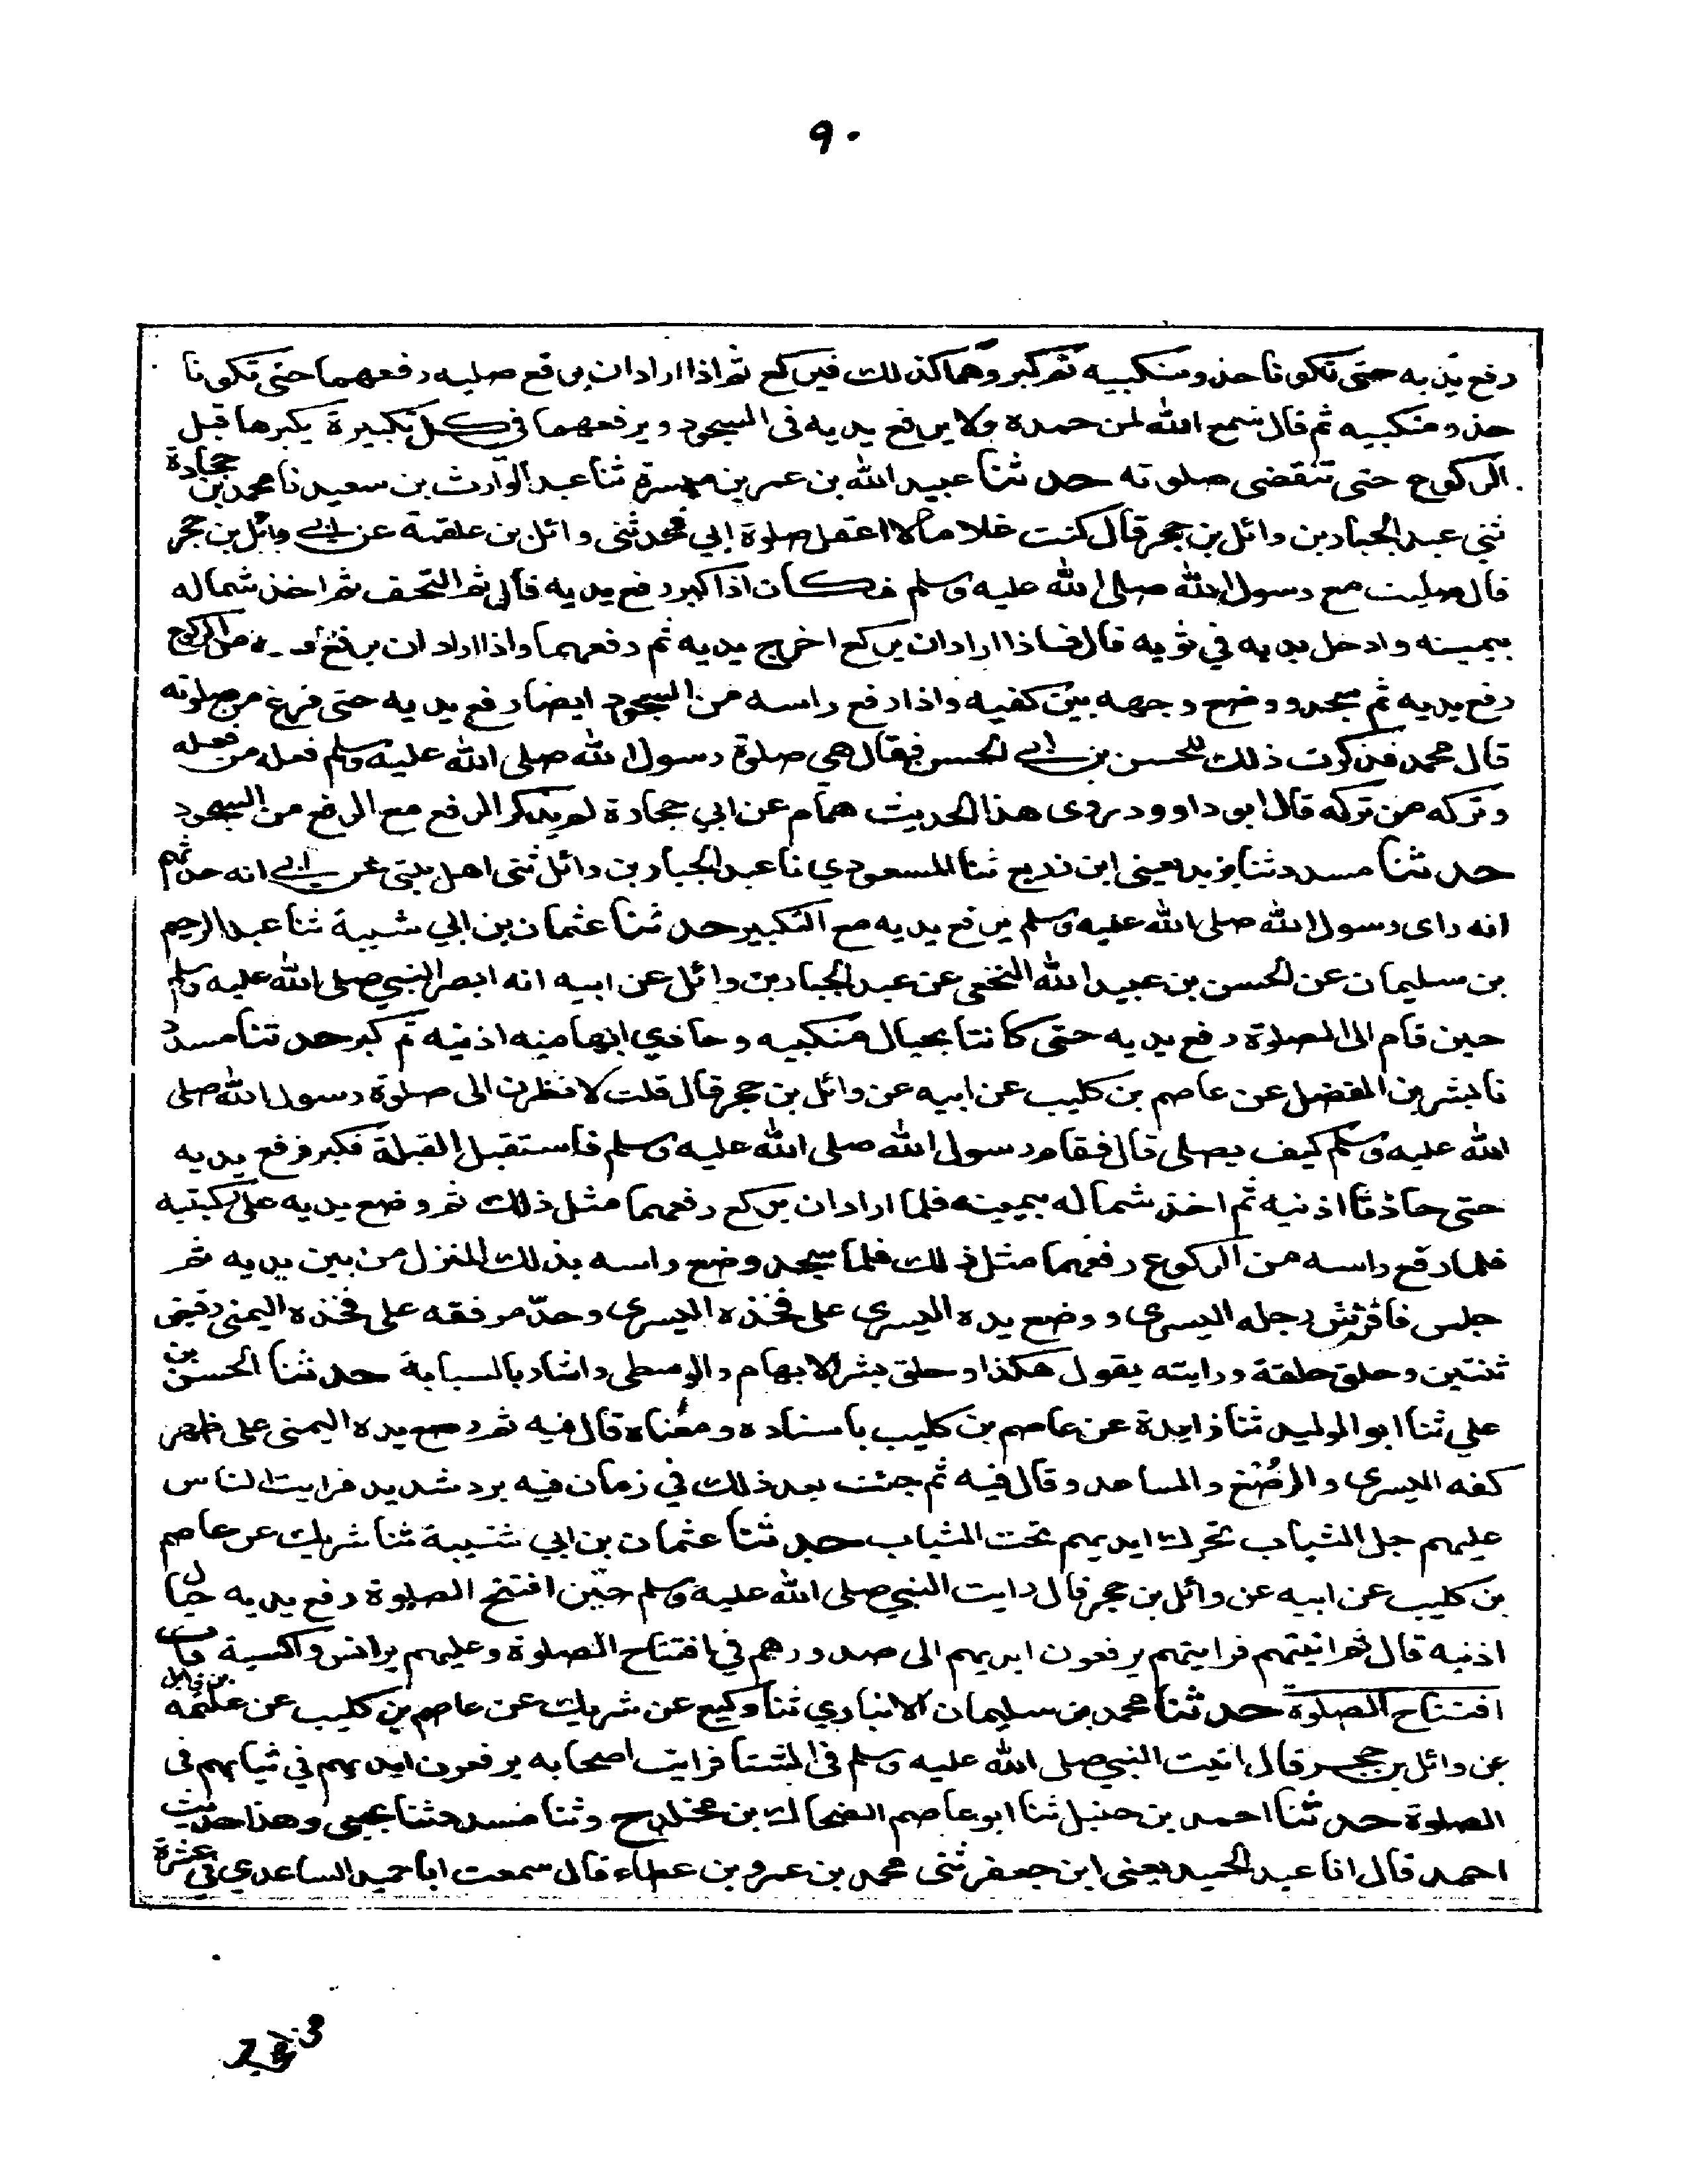 ٩٠
رفع يديه حتى تكونا حذو منكبيه ثم كبر وهما كذلك فيركع ثم اذا اراد ان يرفع صلبه رفعهما حتى تكونا
حذو منكبيه ثم قال سمع الله لمن حمده ولا يرفع يديه فى السجود ويرفعهما في كل تكبيرة يكبرها قبل
الركوع حتى تنقضى صلوته حدثنا عبيد الله بن عمر بن ميسرة ثنا عبد الوارث بن سعيد نا محمد بن جحادة
ثني عبد الجبار بن وائل بن حجر قال كنت غلاما لا اعقل صلوة ابي فحدثنى وائل بن علقمة عن ابي وائل بن حجر
قال صليت مع رسول الله صلى الله عليه وسلم فكان اذا كبر رفع يديه قال ثم التحف ثم اخذ شماله
بيمينه وادخل يديه في ثوبه قال فاذا اراد ان يركع اخرج يديه ثم رفعهما واذا اراد ان يرفع من الركوع
رفع يديه ثم سجد ووضع وجهه بين كفيه واذا رفع راسه من السجود ايضا رفع يديه حتى فرغ من صلوته
قال محمد فذكرت ذلك للحسن بن ابي الحسن فقال هي صلوة رسول الله صلى الله عليه وسلم فعله من فعله
وتركه من تركه قال ابو داوود روى هذا الحديث همام عن ابي جحادة لم يذكر الرفع مع الرفع من السجود
حدثنا مسدد ثنا يزيد يعني ابن زريع ثنا المسعودي نا عبد الجبار بن وائل ثنى اهل بيتى عن ابي انه حدثهم
انه راى رسول الله صلى الله عليه وسلم يرفع يديه مع التكبير حدثنا عثمان بن ابي شيبة ثنا عبد الرحيم
بن سليمان عن الحسن بن عبيد الله النخعى عن عبد الجبار بن وائل عن ابيه انه ابصر النبي صلى الله عليه وسلم
حين قام الى الصلوة رفع يديه حتى كانتا بحيال منكبيه وحاذي ابهاميه اذنيه ثم كبر حدثنا مسدد
نا بشر بن المفضل عن عاصم بن كليب عن ابيه عن وائل بن حجر قال قلت لانظرن الى صلوة رسول الله صلى
الله عليه وسلم كيف يصلى قال فقام رسول الله صلى الله عليه وسلم فاستقبل القبلة فكبر فرفع يديه
حتى حاذتا اذنيه ثم اخذ شماله بيمينه فلما اراد ان يركع رفعهما مثل ذلك ثم وضع يديه على ركبتيه
فلما رفع راسه من الركوع رفعهما مثل ذلك فلما سجد وضع راسه بذلك المنزل من بين يديه ثم
جلس فافترش رجله اليسرى ووضع يده اليسرى على فخذه اليسرى وحدّ مرفقه على فخذه اليمنى وقبض
ثنتين وحلق حلقة ورايته يقول هكذا وحلق بشر الابهام والوسطى واشار بالسبابة حدثنا الحسن بن
علي ثنا ابو الوليد ثنا زايدة عن عاصم بن كليب باسناده ومعناه قال فيه ثم وضع يده اليمنى على ظهر
كفه اليسرى والرضغ والساعد وقال فيه ثم جئت بعد ذلك في زمان فيه برد شديد فرايت الناس
عليهم جل الثياب تحرك ايديهم تحت الثياب حدثنا عثمان بن ابي شيبة ثنا شريك عن عاصم
بن كليب عن ابيه عن وائل بن حجر قال رايت النبي صلى الله عليه وسلم حين افتتح الصلوة رفع يديه حيال
اذنيه قال ثم اتيتهم فرايتهم يرفعون ايديهم الى صدورهم في افتتاح الصلوة وعليهم برانس واكسية باب
افتتاح الصلوة حدثنا محمد بن سليمان الانباري ثنا وكيع عن شريك عن عاصم بن كليب عن علقمة بن وائل
عن وائل بن حجر قال اتيت النبي صلى الله عليه وسلم فى الشتا فرايت اصحابه يرفعون ايديهم في ثيابهم فى
الصلوة حدثنا احمد بن حنبل ثنا ابو عاصم الضحاك بن مخلد ح وثنا مسدد ثنا يحيى وهذا حديث
احمد قال انا عبد الحميد يعنى ابن جعفر ثنى محمد بن عمرو بن عطاء قال سمعت ابا حميد الساعدي في عشرة